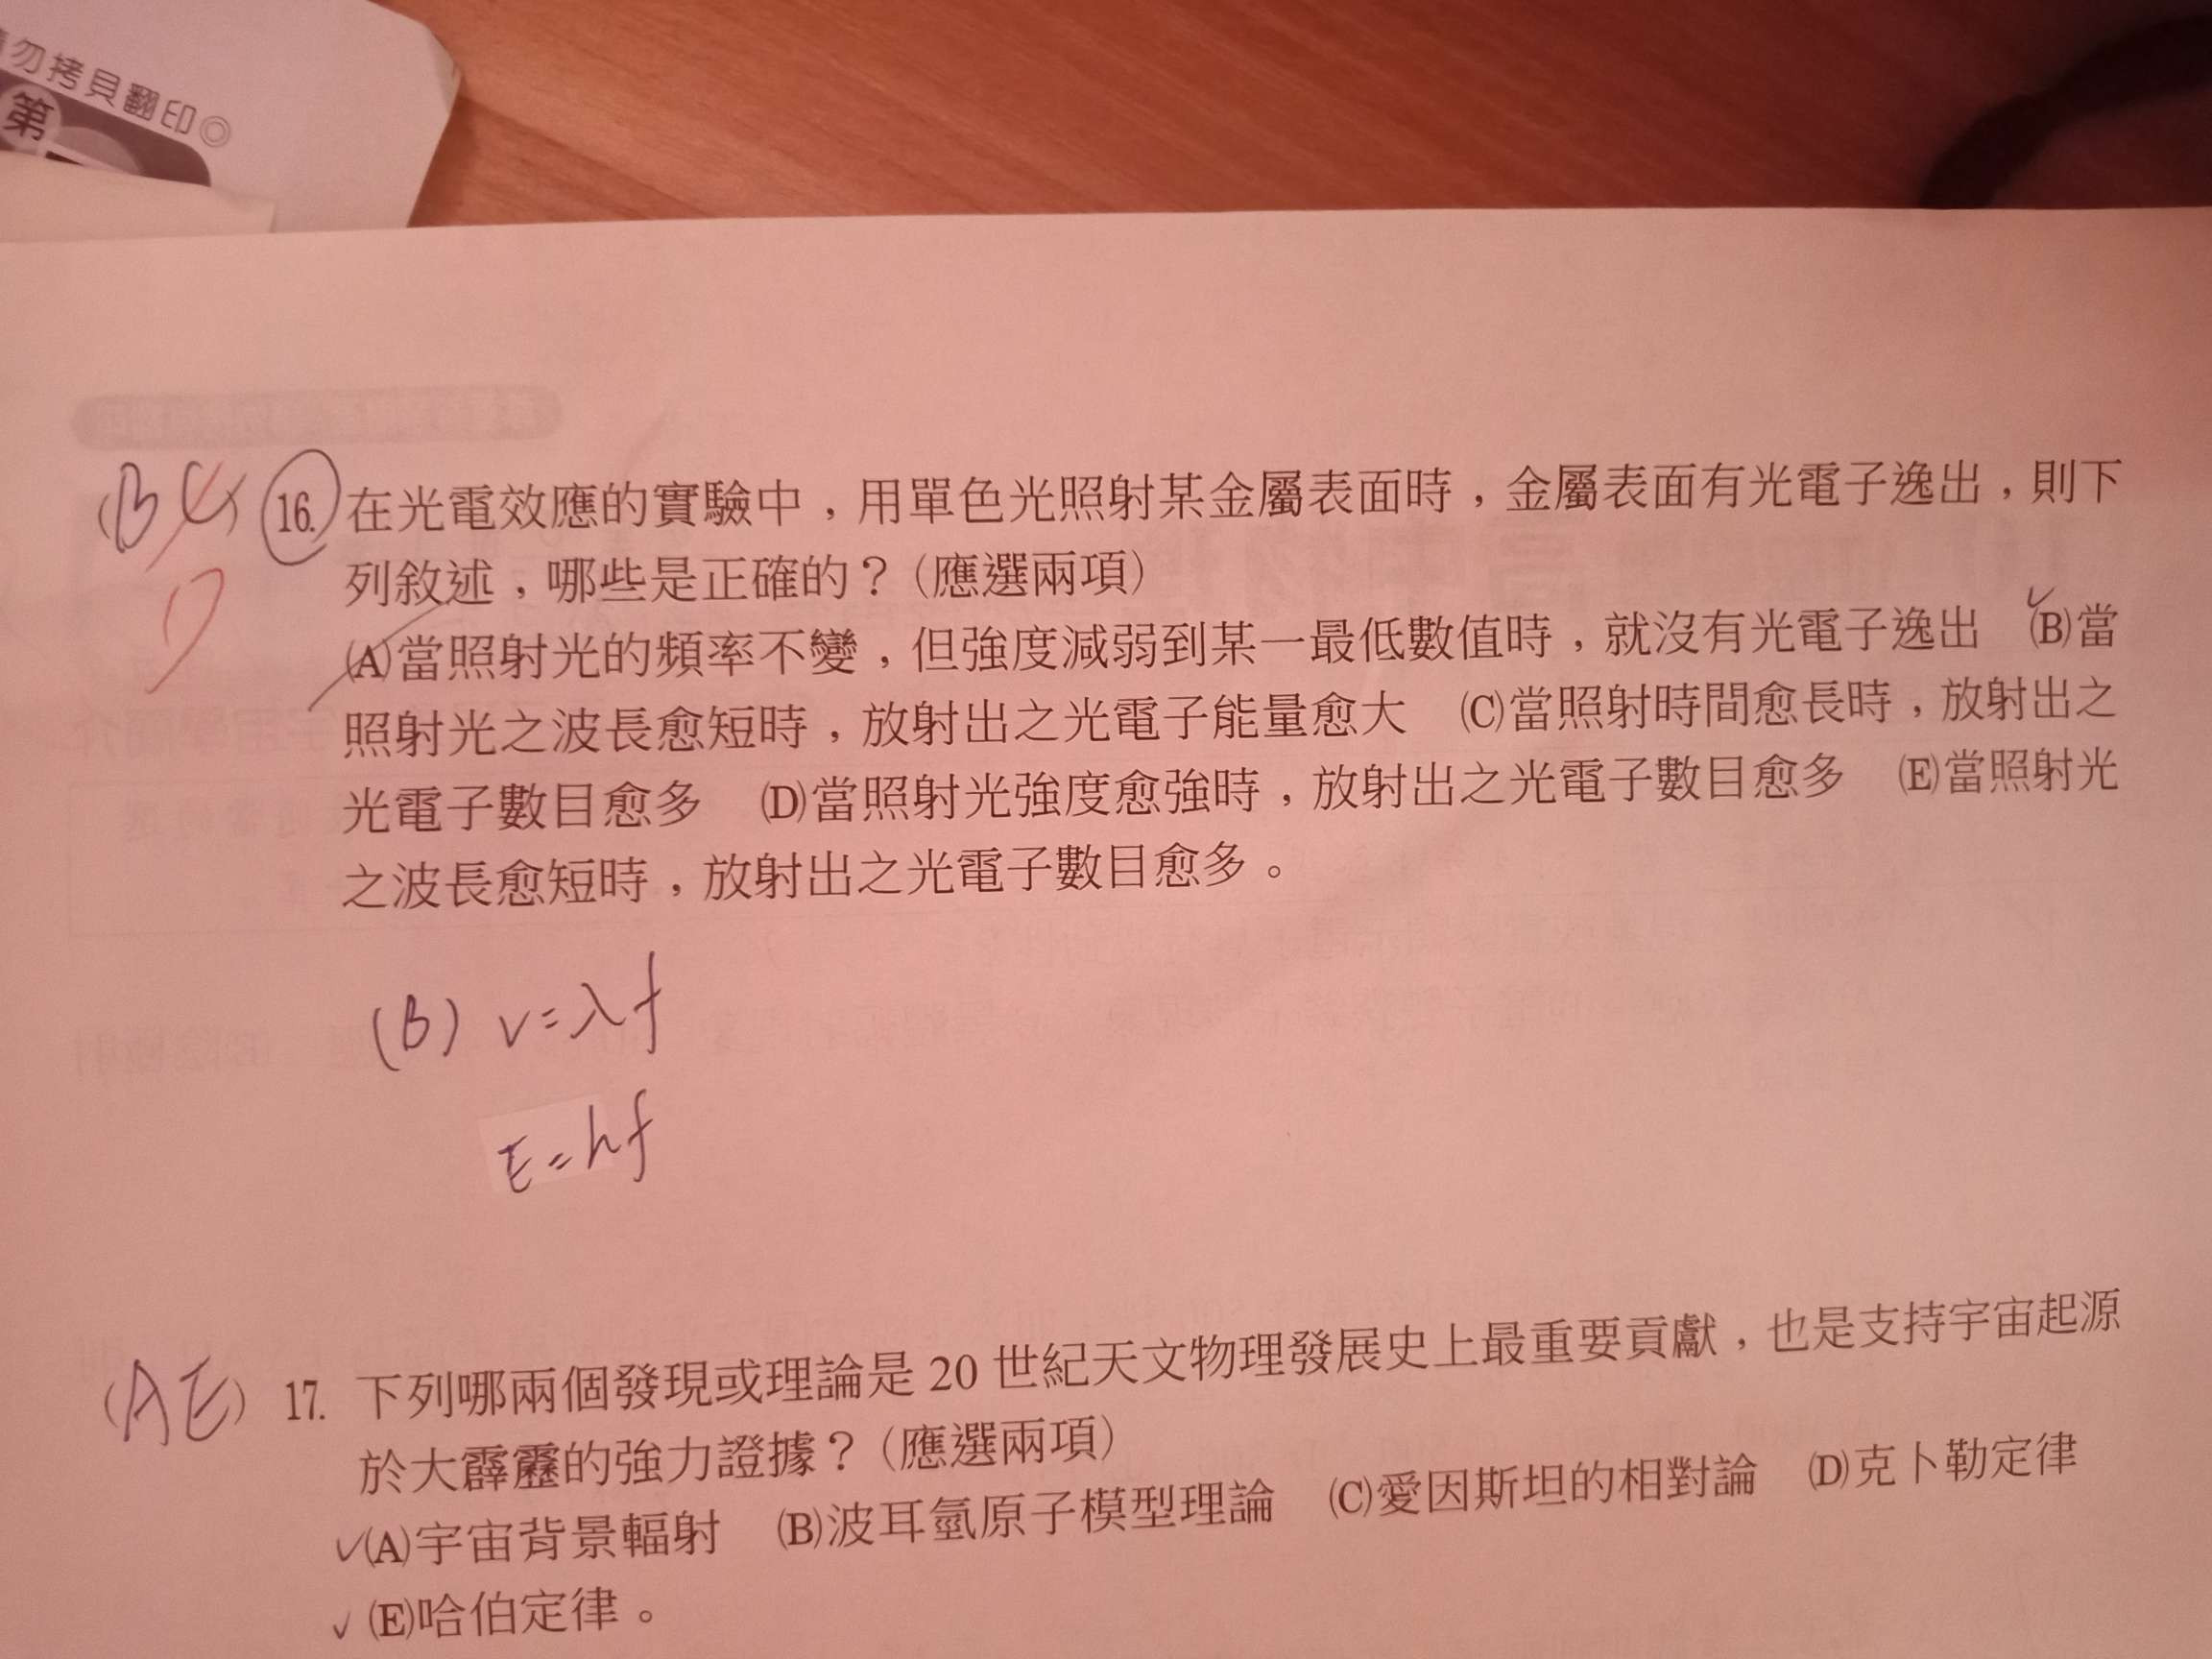 勿拷貝翻印◎
第
(B C) 16. 在光電效應的實驗中，用單色光照射某金屬表面時，金屬表面有光電子逸出，則下
列敘述，哪些是正確的？（應選兩項）
(A)當照射光的頻率不變，但強度減弱到某一最低數值時，就沒有光電子逸出　(B)當
照射光之波長愈短時，放射出之光電子能量愈大　(C)當照射時間愈長時，放射出之
光電子數目愈多　(D)當照射光強度愈強時，放射出之光電子數目愈多　(E)當照射光
之波長愈短時，放射出之光電子數目愈多。
(B) v=λf
E=hf
(AE) 17. 下列哪兩個發現或理論是 20 世紀天文物理發展史上最重要貢獻，也是支持宇宙起源
於大霹靂的強力證據？（應選兩項）
(A)宇宙背景輻射　(B)波耳氫原子模型理論　(C)愛因斯坦的相對論　(D)克卜勒定律
(E)哈伯定律。